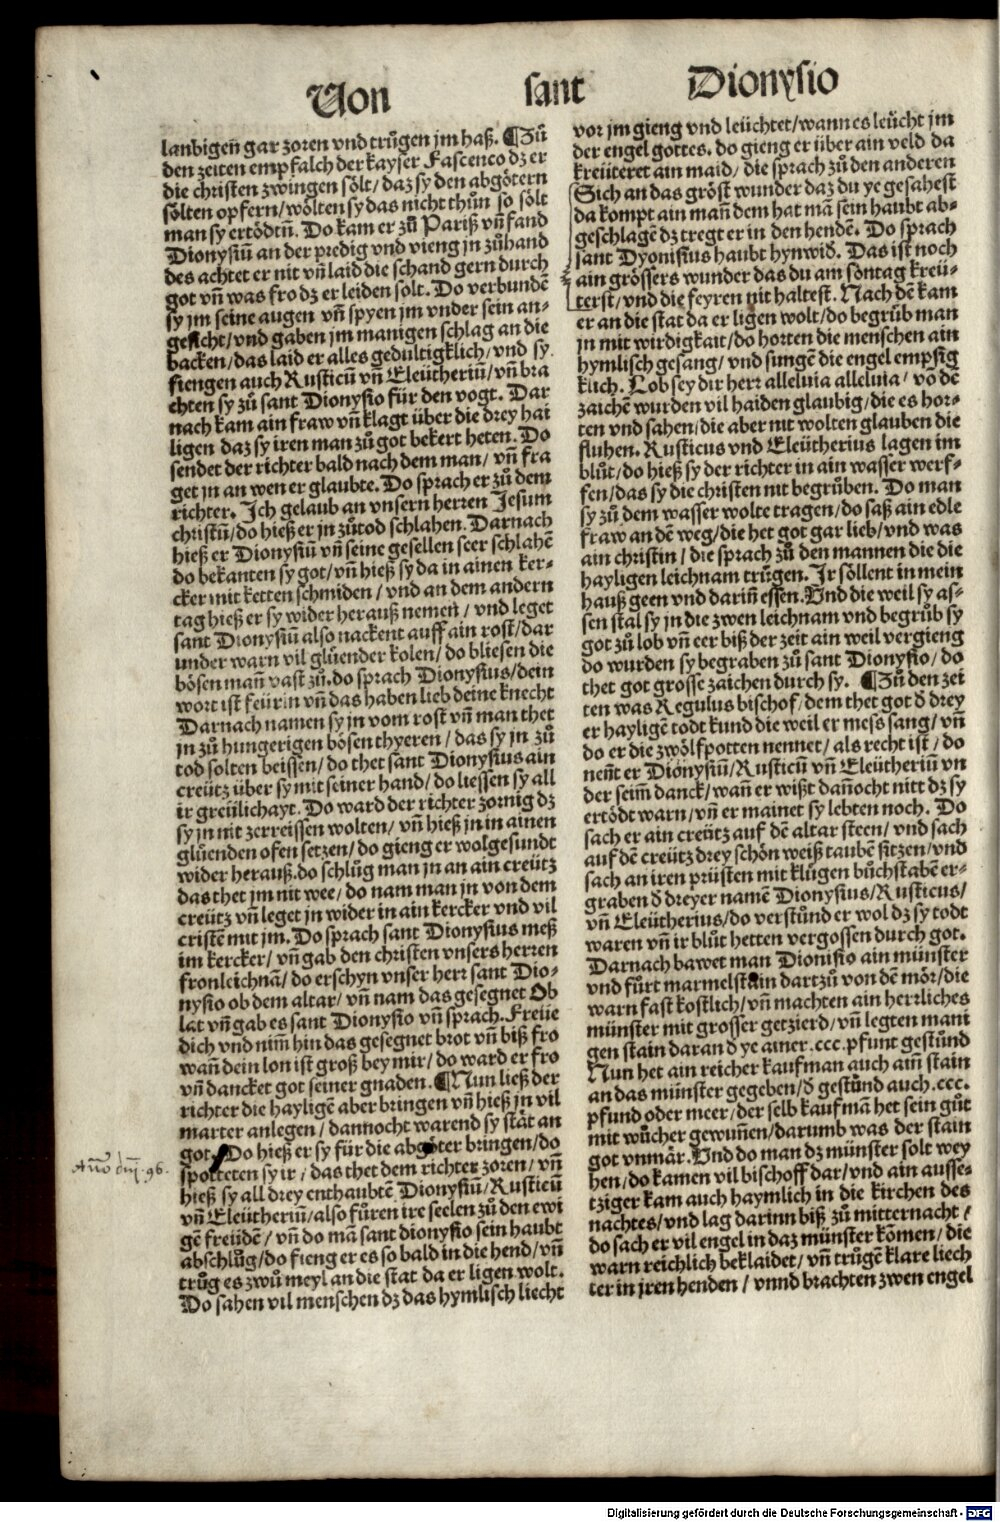 Von sant Dionysio
laubigen̄ gar zoren vnd trůgen jm haß. ¶Zů
den zeiten empfalch der kayser Fascenco dz er
die christen zwingen sölt/ daz sy den abgötern
sölten opfern/wölten sy das nicht thůn so sölt
man sy ertödtn̄. Do kam er zů Pariß vn̄ fand
Dionysiū an der predig vnd vieng jn zůhand
des achtet er nit vn̄ laid die schand gern durch
got vn̄ was fro dz er leiden solt. Do verbundē
sy jm seine augen vn̄ spyen jm vnder sein an-
gesicht/vnd gaben jm manigen schlag an die
backen/das laid er alles gedultigklich/vnd sy
fiengen auch Rusticū vn̄ Eleütheriū/vn̄ bra
chten sy zů sant Dionysio für den vogt. Dar
nach kam ain fraw vn̄ klagt über die drey hai
ligen daz sy iren man zů got bekert heten. Do
sendet der richter bald nach dem man/ vn̄ fra
get jn an wen er glaubte. Do sprach er zů dem
richter. Ich gelaub an vnsern herren Jesum
christū/do hieß er jn zůtod schlahen. Darnach
hieß er Dionysiū vn̄ seine gesellen seer schlahē
do bekanten sy got/vn̄ hieß sy da in ainen ker-
cker mit ketten schmiden / vnd an dem andern
tag hieß er sy wider herauß nemen / vnd leget
sant Dionysiū also nackent auff ain rost/dar
under warn vil glůender kolen/ do bliesen die
bösen man̄ vast zů.do sprach Dionysius/dein
wort ist feürin vn̄ das haben lieb deine knecht
Darnach namen sy jn vom rost vn̄ man thet
jn zů hungerigen bösen thyeren / das sy jn zů
tod solten beissen/ do thet sant Dionysius ain
creütz über sy mit seiner hand/ do liessen sy all
ir greülichayt. Do ward der richter zornig dz
sy jn nit zerreissen wolten/ vn̄ hieß jn in ainen
glůenden ofen setzen/ do gieng er wolgesundt
wider herauß.do schlůg man jn an ain creütz
das thet jm nit wee/ do nam man jn von dem
creütz vn̄ leget jn wider in ain kercker vnd vil
cristē mit jm. Do sprach sant Dionysius meß
im kercker/ vn̄ gab den christen vnsers herren
fronleichnā/ do erschyn vnser herr sant Dio-
nysio ob dem altar/ vn̄ nam das gesegnet Ob
lat vn̄ gab es sant Dionysio vn̄ sprach. Freüe
dich vnd nim̄ hin das gesegnet brot vn̄ biß fro
wan̄ dein lon ist groß bey mir/ do ward er fro
vn̄ dancket got seiner gnaden. ¶Nun ließ der
richter die hayligē aber bringen vn̄ hieß jn vil
marter anlegen/ dannocht warend sy stät an
got. Do hieß er sy für die abgöter bringen/do
spotteten sy ir / das thet dem richter zoren/ vn̄
hieß sy all drey enthaubtē Dionysiū/Rusticū
vn̄ Eleütheriū/also fůren ire seelen zů den ewi
gē freüdē / vn̄ do mā sant dionysio sein haubt
abschlůg/do fieng er es so bald in die hend/vn̄
trůg es zwů meyl an die stat da er ligen wolt.
Do sahen vil menschen dz das hymlisch liecht
vor jm gieng vnd leüchtet/wann es leücht jm
der engel gottes. do gieng er über ain veld da
kreüteret ain maid/ die sprach zů den anderen
Sich an das gröst wunder daz du ye gesahest
da kompt ain man̄ dem hat mā sein haubt ab-
geschlagē dz tregt er in den hendē. Do sprach
sant Dyonisius haubt hynwid̄. Das ist noch
ain grössers wunder das du am sontag kreü-
terst/vnd die feyren nit haltest. Nach dē kam
er an die stat da er ligen wolt/do begrůb man
jn mit wirdigkait/do horten die menschen ain
hymlisch gesang/ vnd sungē die engel empsig
klich. Lob sey dir herr alleluia alleluia/ vō dē
zaichē wurden vil haiden glaubig/die es hor-
ten vnd sahen/die aber nit wolten glauben die
fluhen. Rusticus vnd Eleütherius lagen im
blůt/do hieß sy der richter in ain wasser werf-
fen/das sy die christen nit begrůben. Do man
sy zů dem wasser wolte tragen/do saß ain edle
fraw an dē weg/die het got gar lieb/vnd was
ain christin / die sprach zů den mannen die die
hayligen leichnam trůgen. Ir söllent in mein
hauß geen vnd darin̄ essen. Vnd die weil sy as-
sen stal sy jn die zwen leichnam vnd begrůb sy
got zů lob vn̄ eer biß der zeit ain weil vergieng
do wurden sy begraben zů sant Dionysio/ do
thet got grosse zaichen durch sy. ¶Zů den zei
ten was Regulus bischof/dem thet got d̄ drey
er hayligē todt kund die weil er mess sang/ vn̄
do er die zwölfpotten nennet/ als recht ist / do
nen̄t er Dionysiū/Rusticū vn̄ Eleütheriū vn
der seim̄ danck/wan̄ er wißt dan̄ocht nitt dz sy
ertödt warn/vn̄ er mainet sy lebten noch. Do
sach er ain creütz auf dē altar steen/ vnd sach
auf dē creütz drey schön weiß taubē sitzen/vnd
sach an iren prüsten mit klůgen bůchstabē er-
graben d̄ dreyer namē Dionysius/Rusticus/
vn̄ Eleütherius/do verstůnd er wol dz sy todt
waren vn̄ ir blůt hetten vergossen durch got.
Darnach bawet man Dionisio ain münster
vnd fürt marmelstain dartzů von dē mör/die
warn fast kostlich/vn̄ machten ain herrliches
münster mit grosser getzierd/vn̄ legten mani
gen stain daran d̄ ye ainer .ccc.pfunt gestůnd
Nun het ain reicher kaufman auch aim̄ stain
an das münster gegeben/d̄ gestůnd auch .ccc.
pfund oder meer/der selb kaufmā het sein gůt
mit wůcher gewun̄en/darumb was der stain
got vnmär. Vnd do man dz münster solt wey
hen/do kamen vil bischoff dar/vnd ain aussē-
tziger kam auch haymlich in die kirchen des
nachtes/vnd lag darinn biß zů mitternacht /
do sach er vil engel in daz münster kōmen/die
warn reichlich beklaidet/ vn̄ trůgē klare liech
ter in jren henden / vnnd brachten zwen engel
Digitalisierung gefördert durch die Deutsche Forschungsgemeinschaft - DFG